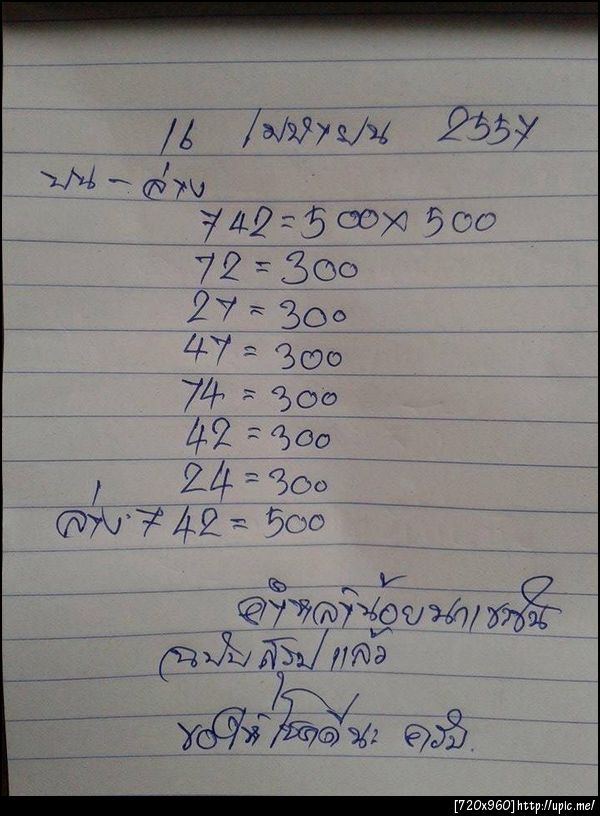 16 เมษายน 2557
บน - ล่าง
742 = 500 × 500
72 = 300
27 = 300
47 = 300
74 = 300
42 = 300
24 = 300
ล่าง 742 = 500
น้อย
ฉบับสรุปแล้ว
ขอให้โชคดีนะ ครับ.
[720x960]http://upic.me/